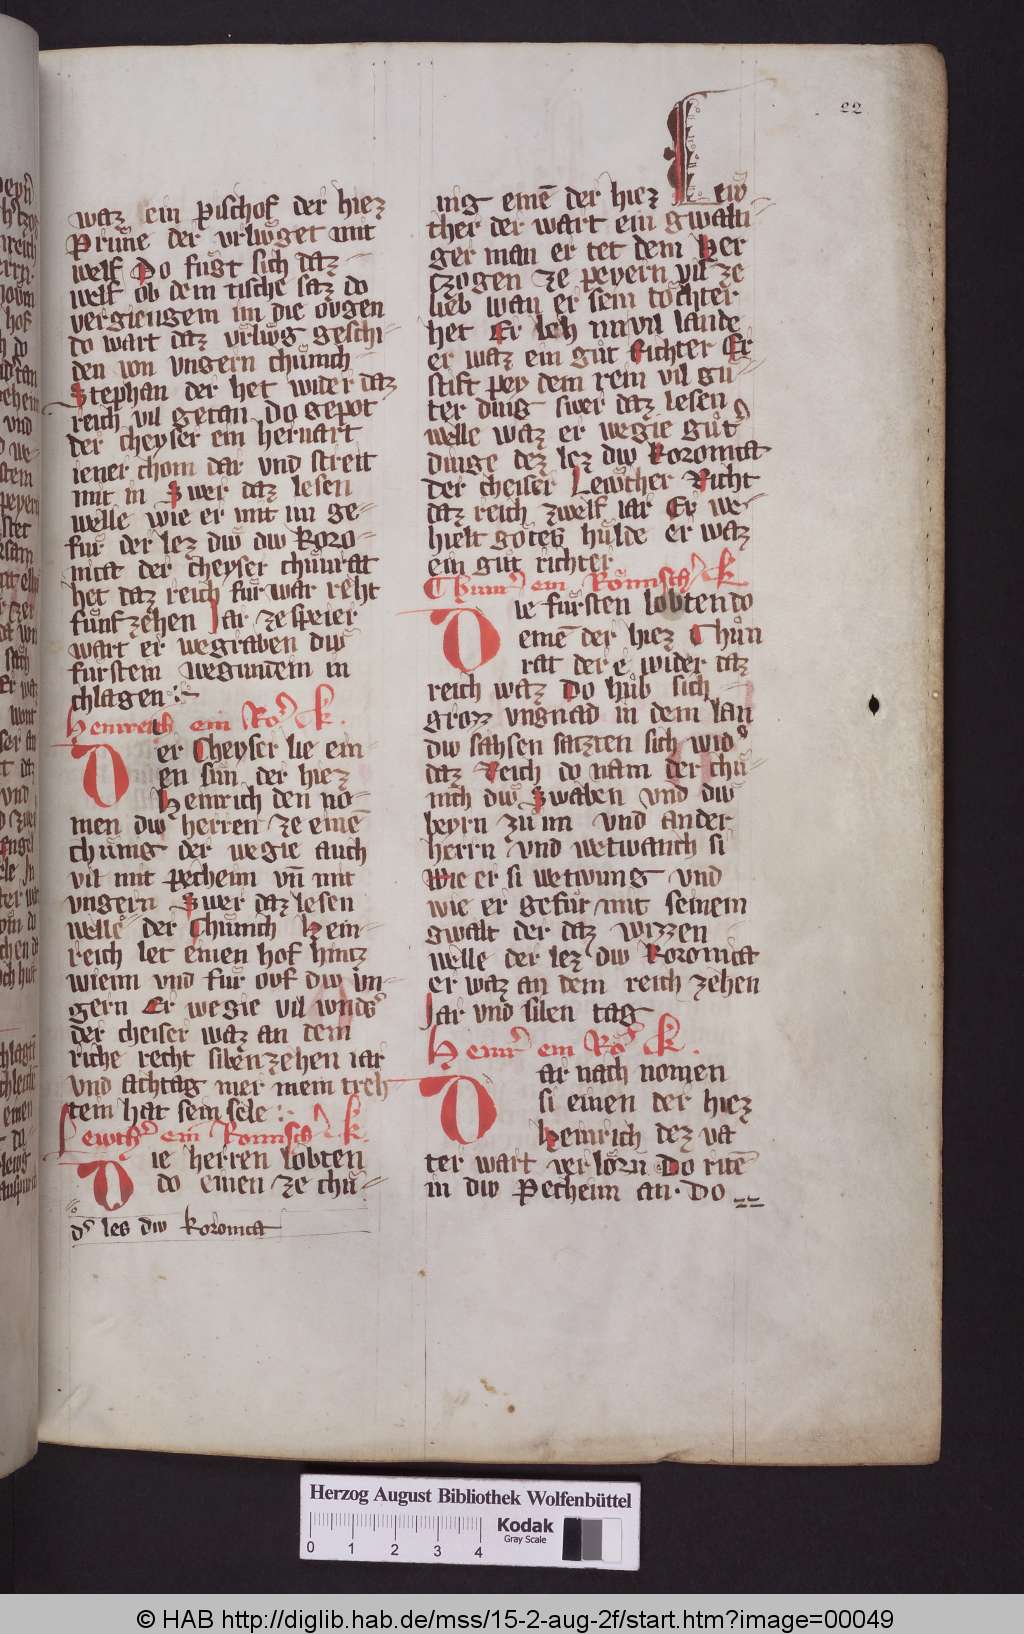 22
waz ein pischof der hiez
Prűne der vrlwget mit
welf Do fůgt sich daz
welf ob dem tische saz do
vergiengem im die ovgen
do wart daz vrlwg geschi
den von vngern chůnich
Stephan der het wider daz
reich vil getan do gepot
der cheyser ein heruart
iener chom dar vnd streit
mit in Swer daz lesen
welle wie er mit im ge
fůr der lez diw diw koro
nica der cheyser chůnrat
het daz reich fůr war reht
fűnfzehen Jar ze speier
wart er wegraben diw
fűrstein wegunden in
chlagen
Henreich ein Ro k.
Der Cheyser lie ein
en sůn der hiez
Heinrich den no
men diw herren ze eine
chűnig der wegie auch
vil mit pecheim vn mit
vngern Swer daz lesen
welle der Chűnich Hein
reich let einen hof hintz
wienn vnd fůr ovf diw vn
gern Er wegie vil wnds
der cheiser waz an dem
riche recht siben zehen iar
vnd achtag mer mein treh
tein hat sein sele
Lewth ein Romisch k.
Die herren lobten
do einen ze chű
ds les diw koronica
nig eine der hiez Lew
ther der wart ein gwalti
ger man er tet dem Her
czogen ze peyern vil ze
lieb wan er sein tochter
het Er leh im vil lande
er waz ein gůt Richter Er
stift pey dem rein vil gu
ter ding swer daz lesen
welle waz er wegie gůt
dinge dez lez diw koronica
der cheiser Lewther Richt
daz reich zwelf iar Er we
hielt gotes hulde er waz
ein gůt richter
Chunr ein Römisch k
Die fűrsten lobten do
eine der hiez Chůn
rat der e wider daz
reich waz Do hůb sich
grozz vngnad in dem lan
diw sahsen satzten sich wid
daz Reich do nam der chů
nich diw Swaben vnd diw
beyrn zů im vnd ander
herrn vnd wetwanch si
wie er si wetwung vnd
wie er gefůr mit seinem
gwalt der daz wizzen
welle der lez diw koronica
er waz an dem reich zehen
Jar vnd siben tag
Heinr ein Rö k.
Dar nach nomen
si einen der hiez
Heinrich dez va
ter wart verlorn Do rite
in diw Pecheim an. Do
Herzog August Bibliothek Wolfenbüttel
0 1 2 3 4
Kodak
Gray Scale
© HAB http://diglib.hab.de/mss/15-2-aug-2f/start.htm?image=00049